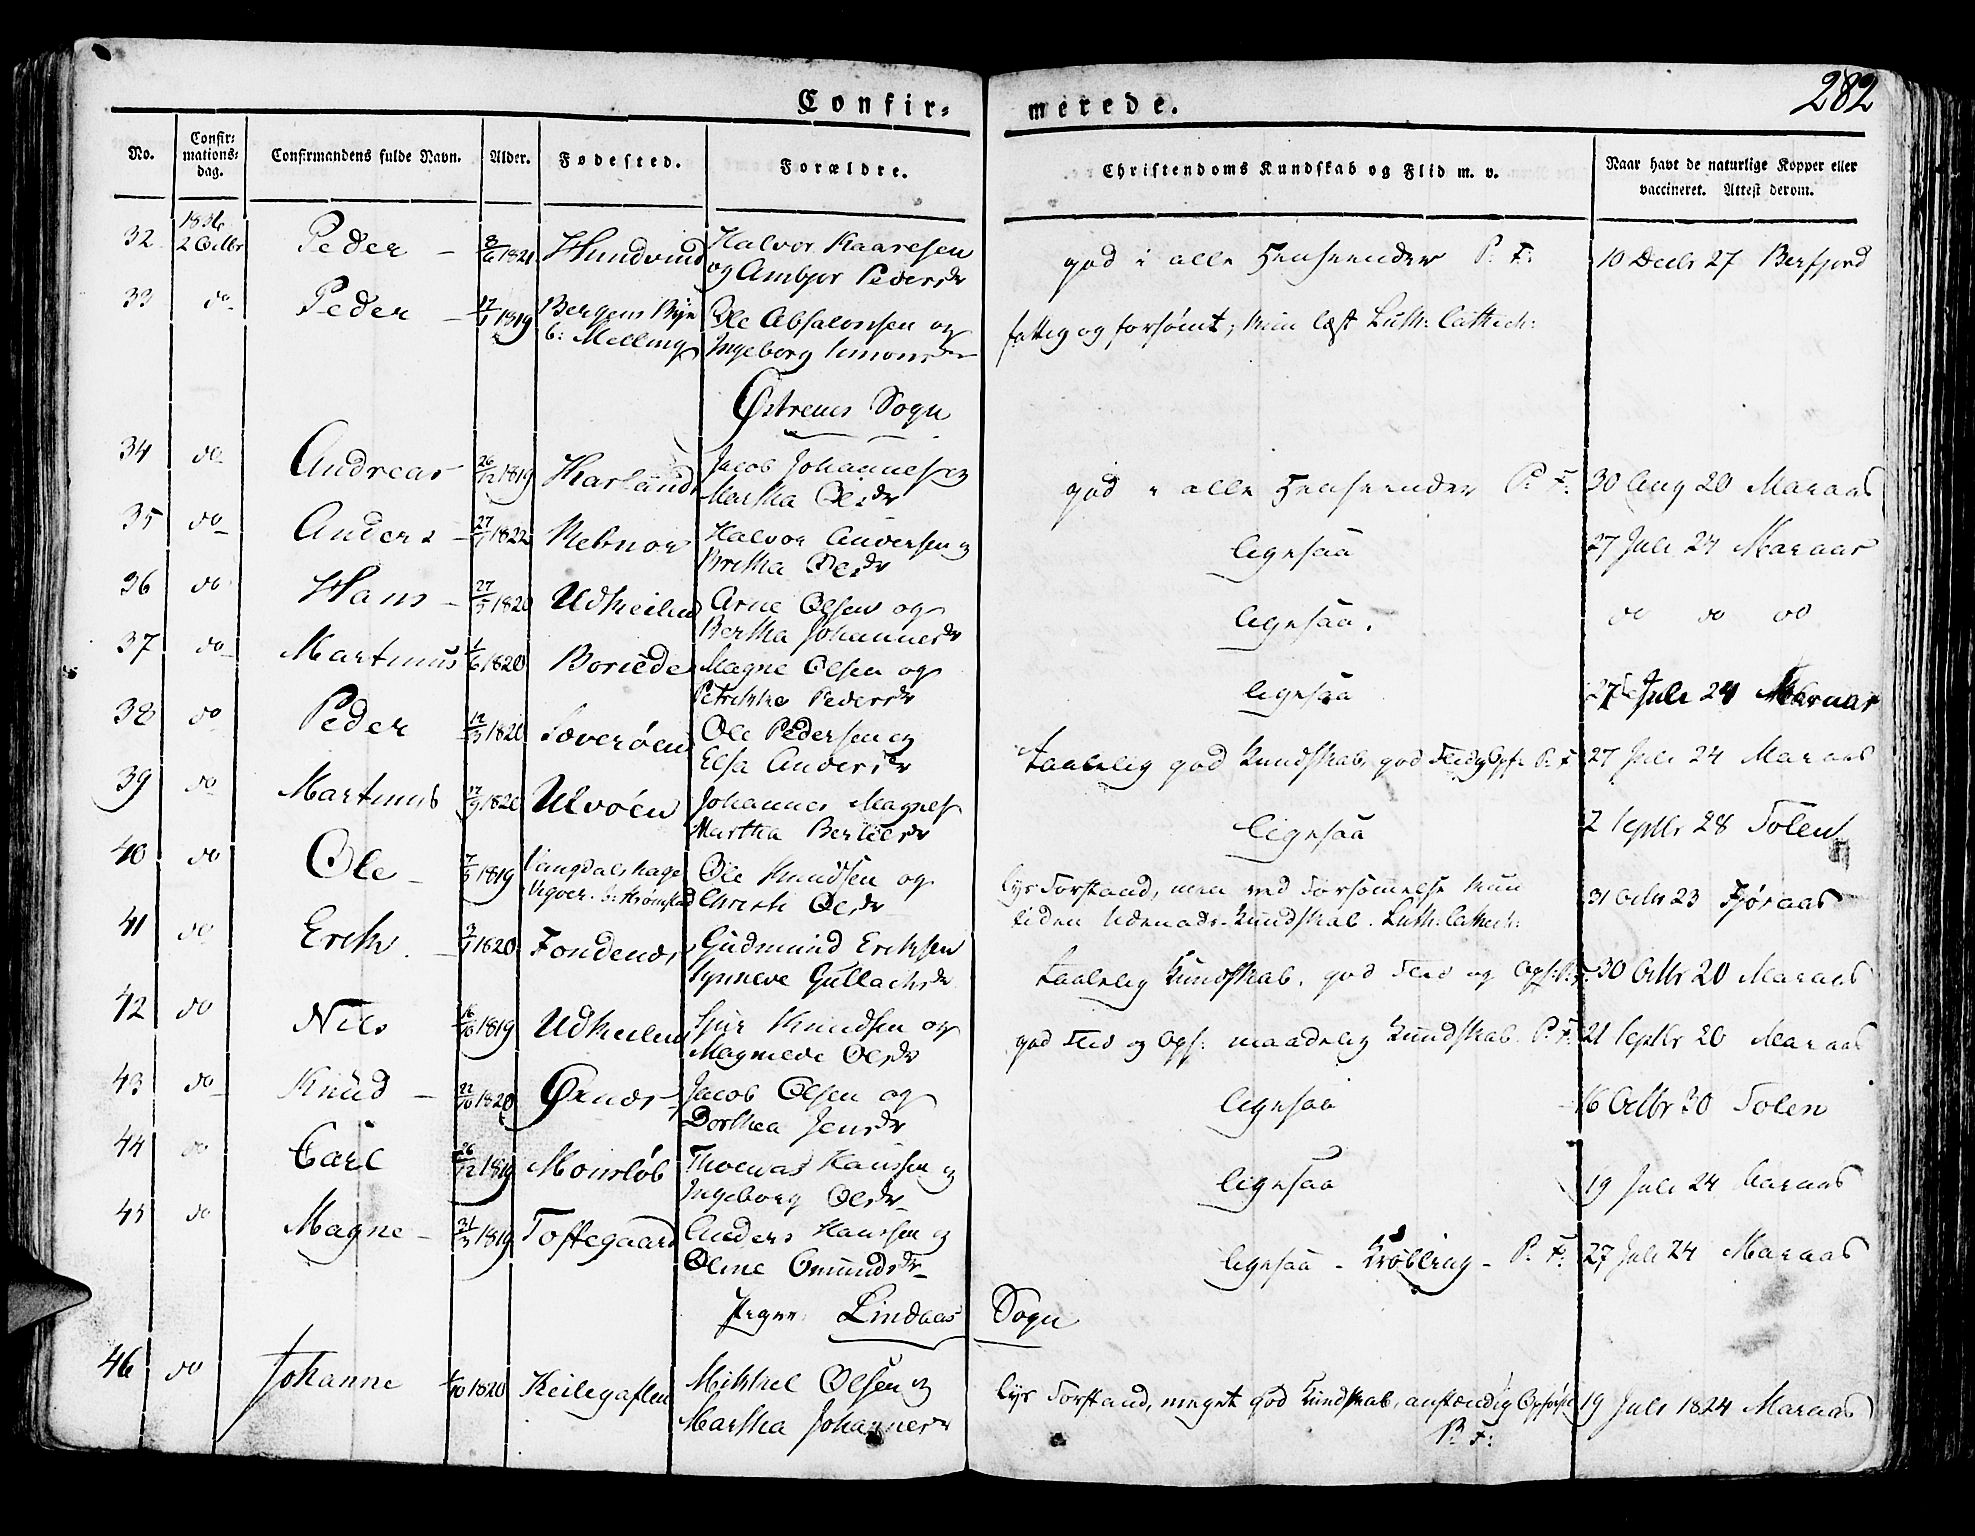 282
Confir- merede.
No. Confir- mations- dag. Confirmandens fulde Navn. Alder. Fødested. Forældre. Christendoms Kundskab og Flid m. v. Naar havt de naturlige Kopper eller vaccineret. Attest derom.
32 1836 2 Octbr Peder - 8/6 1821 Hundvind Halvor Kaaresen god i alle Henseender P. F: 10 Decbr 27
og Ambjor Pedersdr
33 do Peder - 1819 Bergens Bye Ole Absalonsen og fattig og forsømt, kun læst Luth: Cathech:
b: Melling Ingeborg Simonsdr
Østrems Sogn
34 do Andreas 26/12 1819 Harland Jacob Johannesen god i alle Henseender P. F: 30 Aug 20 Maraas
Martha Olsdr
35 do Anders - 27/7 1822 Nebnor Halvor Andersen og ligesaa 27 Juli 24 Maraas
Britha Olsdr
36 do Hans - 27/5 1820 Udkeilen Arne Olsen og ligesaa. do do do
Bertha Johannesdr
37 do Martinus 1/6 1820 Magne Olsen og ligesaa 27 Juli 24 Maraas
Petrikke Pedersdr
38 do Peder 12/3 1820 Sæverøen Ole Pedersen og taalelig god Kundskab, god Flid og Opf: P. F 27 Juli 24 Maraas
Elsa Andersdr
39 do Martinus 17/9 1820 Ulvöen Johannes Magnes ligesaa 2 Septbr 28 Tolen
Martha Bertelsdr
40 do Ole - 7/5 1819 Ole Knudsen og lys Forstand, men ved Forsømmelse kun 31 Octbr 23 Fjøraas
Christi Olsdr liden Udenads-Kundskab. Luth: Cathech:
41 do Erik. - 1820 Fondenes Gudmund Eriksen taalelig Kundskab, god Flid og Opf: P. F. 30 Octbr 20 Maraas
Synneve Gullachsdr
42 do Nils 16/10 1819 Udkeilen Sjur Knudsen og god Flid og Opf: maadelig Kundskab P. F: 21 Septbr 20 Maraas
Magnilde Olsdr
43 do Knud - 22/10 1820 Ørnes Jacob Olsen og ligesaa 16 Octbr 30 Tolen
Dorthea Jensdr
44 do Carl 26/12 1819 Monsløb Thomas Hansen og ligesaa 19 Juli 24 Maraas
Ingeborg Olsdr
45 do Magne - 31/3 1819 Toftegaard Anders Hansen og ligesaa - Krøbling - P. F: 27 Juli 24 Maraas
Oline Omundsdr
Piger: Lindaas Sogn
46 do Johanne 1/10 1820 Keilegaflen Mikkel Olsen og lys Forstand, meget god Kundskab, anstændig Opførsel 19 Juli 1824 Maraas
Martha Johannesdr P. F: